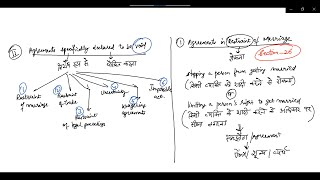 II Agreements specifically declared to be void
① Restraint of marriage
② Restraint of trade
③ Restraint of legal proceedings
④ Uncertainty
⑤ Wagering agreements
⑥ Impossible act.
① Agreements in Restraint of Marriage
रोकना
Section-26
Stopping a person from getting married
(किसी व्यक्ति को शादी करने से रोकना)
Limiting a person's right to get married
(किसी व्यक्ति के शादी करने के अधिकार पर
सीमा लगाना)
समझौता / Agreement
Void / शून्य / व्यर्थ